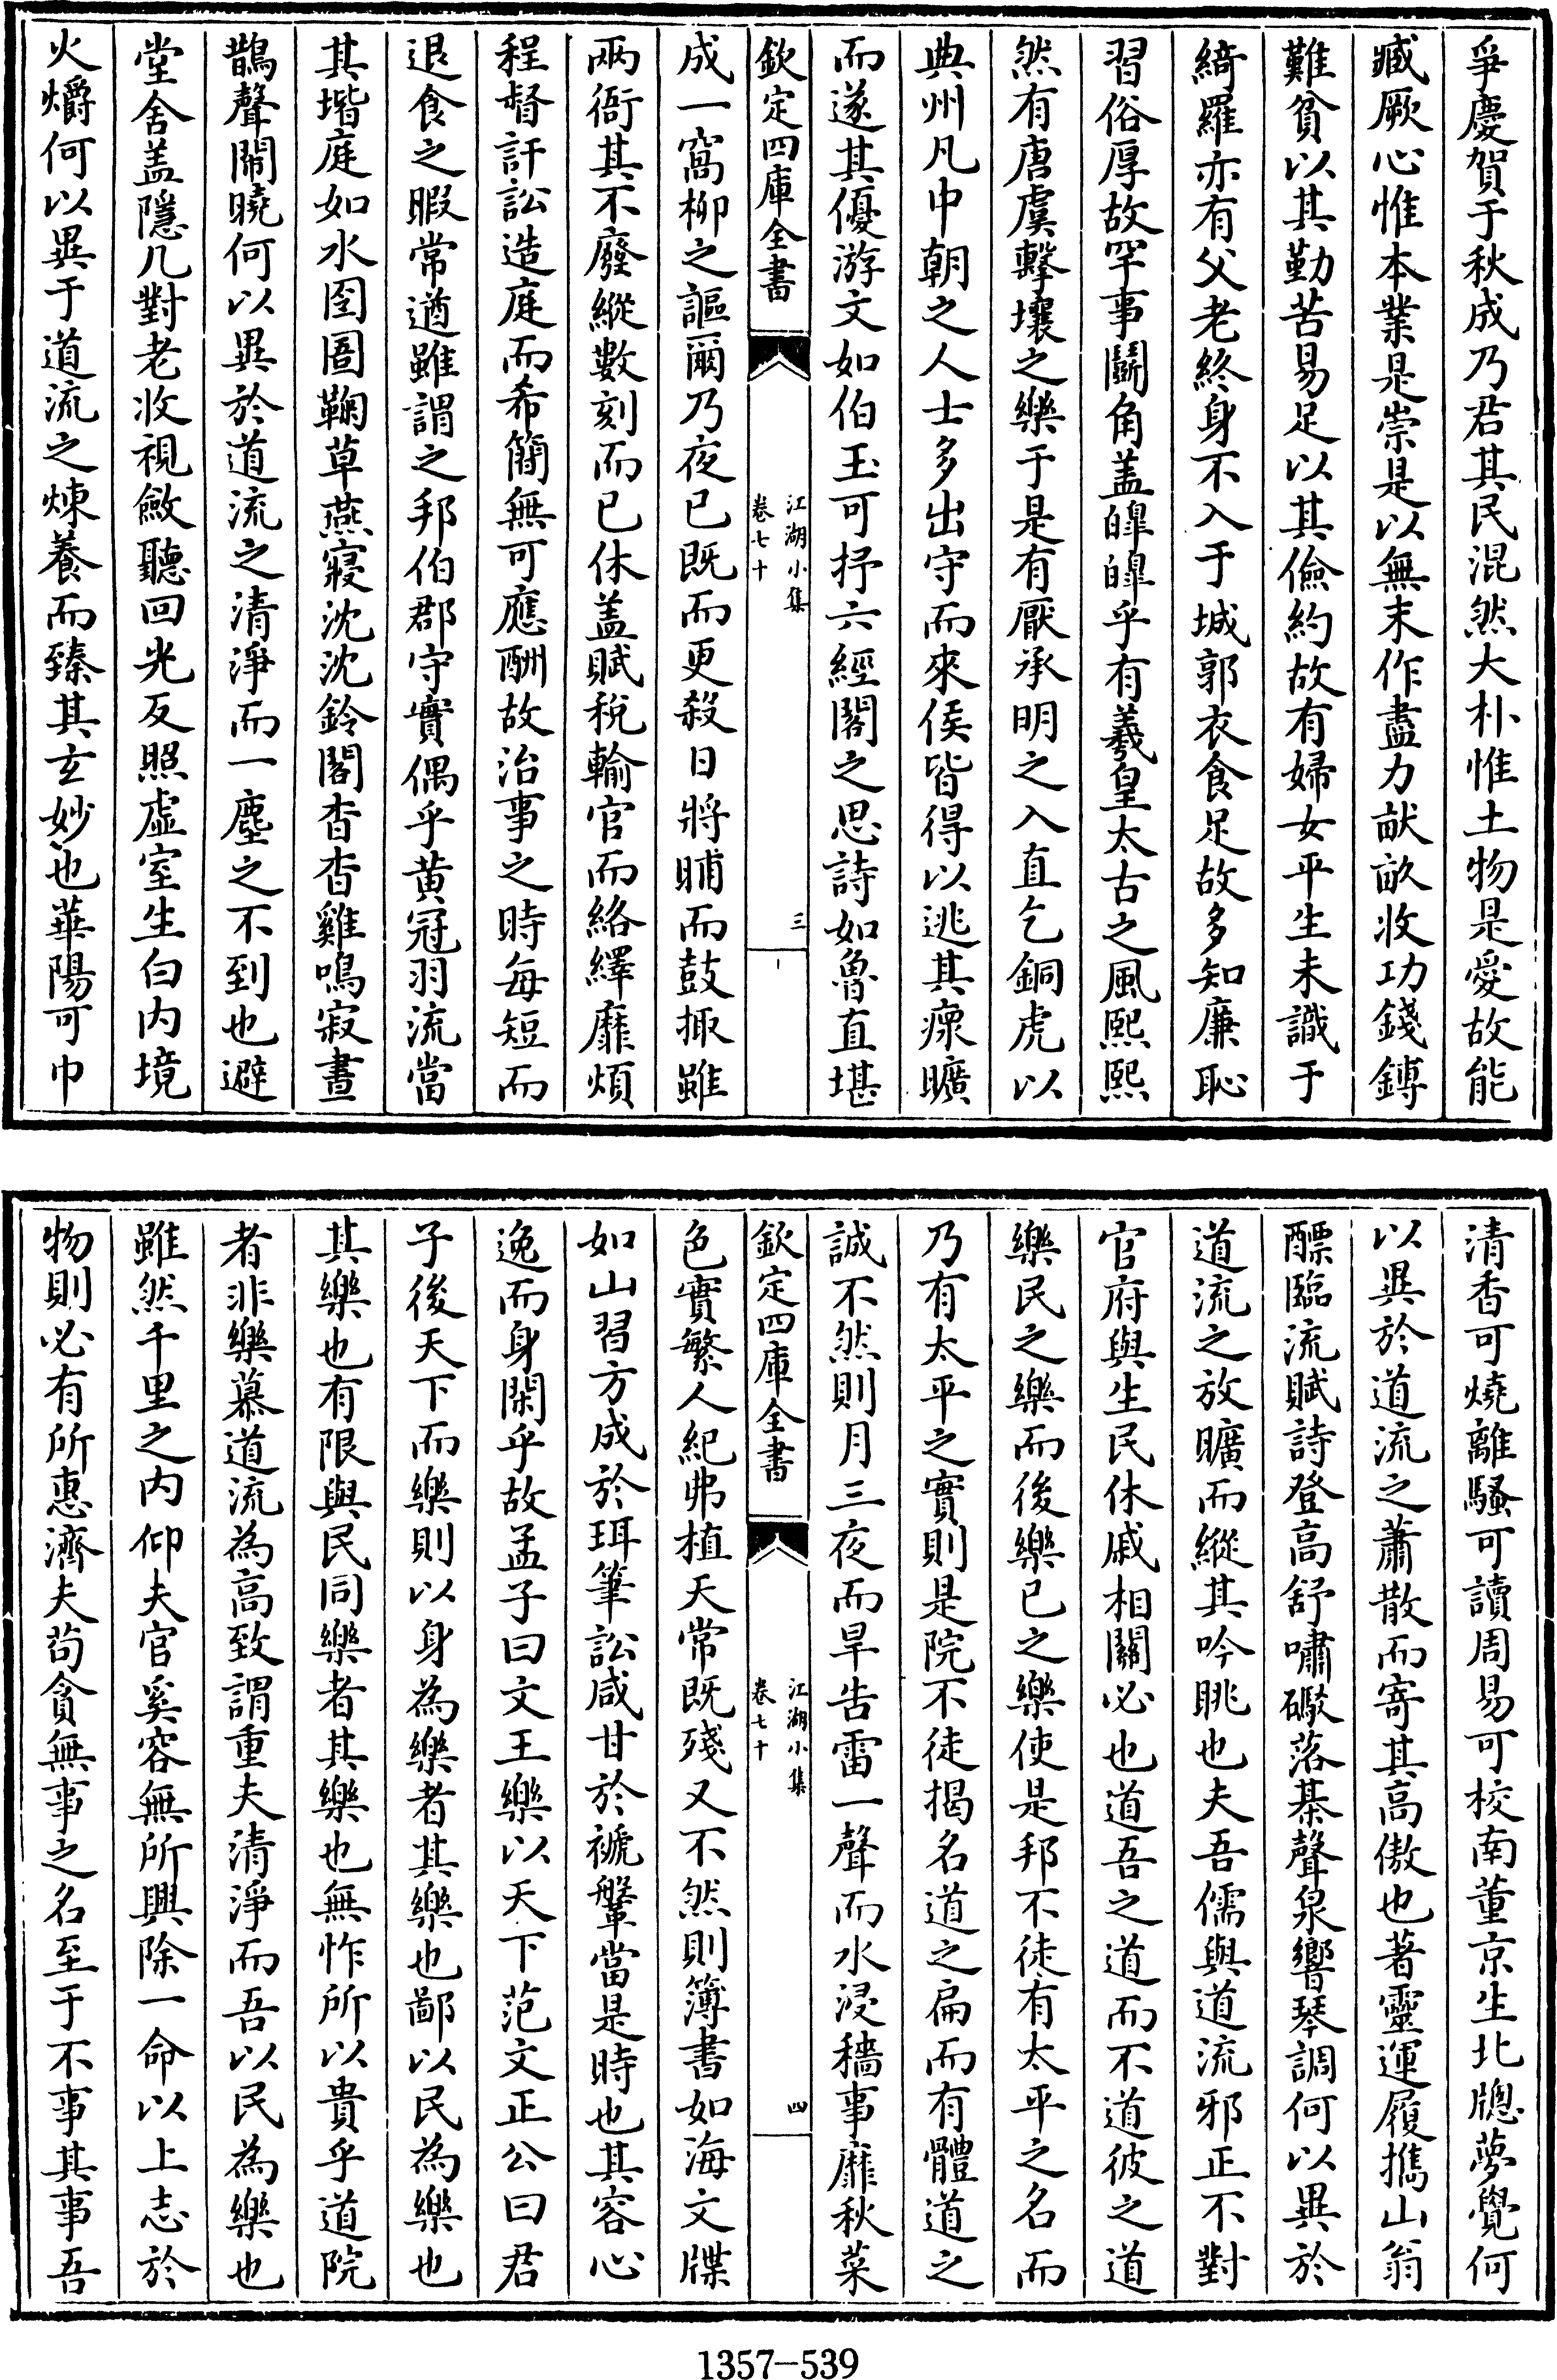 爭慶賀于秋成乃君其民混然大朴惟土物是愛故能
臧厥心惟本業是崇是以無末作盡力畎畝收功錢鎛
難貧以其勤苦易足以其儉約故有婦女平生未識于
綺羅亦有父老終身不入于城郭衣食足故多知廉恥
習俗厚故罕事鬭角盖皥皥乎有羲皇太古之風熙熙
然有唐虞擊壤之樂于是有厭承明之入直乞銅虎以
典州凡中朝之人士多出守而來侯皆得以逃其瘝曠
而遂其優游文如伯玉可抒六經閣之思詩如魯直堪
欽定四庫全書
江湖小集
卷七十
三
成一窩柳之謳爾乃夜已既而更殺日將晡而鼓掫雖
兩衙其不廢縱數刻而已休盖賦稅輸官而絡繹靡煩
程督訐訟造庭而希簡無可應酬故治事之時每短而
退食之暇常遒雖謂之邦伯郡守實偶乎黄冠羽流當
其堦庭如水囹圄鞠草燕寢沈沈鈴閣杳杳雞鳴寂晝
鵲聲閙曉何以異於道流之清淨而一塵之不到也避
堂舍盖隱几對老收視斂聽回光反照虛室生白内境
火爝何以異于道流之煉養而臻其玄妙也華陽可巾
清香可燒離騷可讀周易可校南董京生北牕夢覺何
以異於道流之蕭散而寄其高傲也著靈運履攜山翁
醥臨流賦詩登高舒嘯礙落棊聲泉響琴調何以異於
道流之放曠而縱其吟眺也夫吾儒與道流邪正不對
官府與生民休戚相關必也道吾之道而不道彼之道
樂民之樂而後樂已之樂使是邦不徒有太平之名而
乃有太平之實則是院不徒揭名道之扁而有體道之
誠不然則月三夜而旱告雷一聲而水浸穡事靡秋菜
欽定四庫全書
江湖小集
卷七十
四
色實繁人紀弗植天常既殘又不然則簿書如海文牒
如山習方成於珥筆訟咸甘於褫鞶當是時也其容心
逸而身閑乎故孟子曰文王樂以天下范文正公曰君
子後天下而樂則以身為樂者其樂也鄙以民為樂也
其樂也有限與民同樂者其樂也無怍所以貴乎道院
者非樂慕道流為高致謂重夫清淨而吾以民為樂也
雖然千里之内仰夫官奚容無所興除一命以上志於
物則必有所惠濟夫苟貪無事之名至于不事其事吾
1357-539